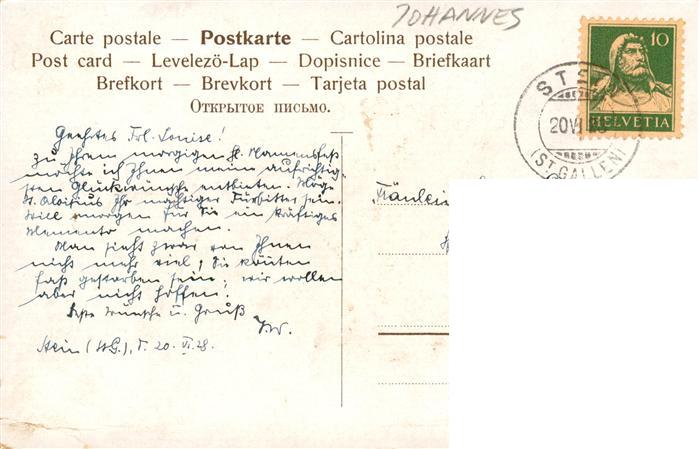 JOHANNES
Carte postale — Postkarte — Cartolina postale
Post card — Levelező-Lap — Dopisnice — Briefkaart
Brefkort — Brevkort — Tarjeta postal
Открытое письмо.
10
HELVETIA
ST
20 VI
(ST. GALLEN)
Geehrtes Frl. Louise!
Zu Ihrem morgigen hl. Namensfest
möchte ich Ihnen meine aufrichtig-
sten Glückwünsche entbieten. Möge
St. Aloisius Ihr mächtiger Fürbitter sein.
Will morgen für Sie ein kräftiges
Memento machen.
Man sieht zwar von Ihnen
nicht mehr viel, Sie könnten
fast gestorben sein; wir wollen
aber nicht hoffen.
Beste Wünsche u. Gruß
Stein (St.G.), d. 20. VI. 28.
Fräulein